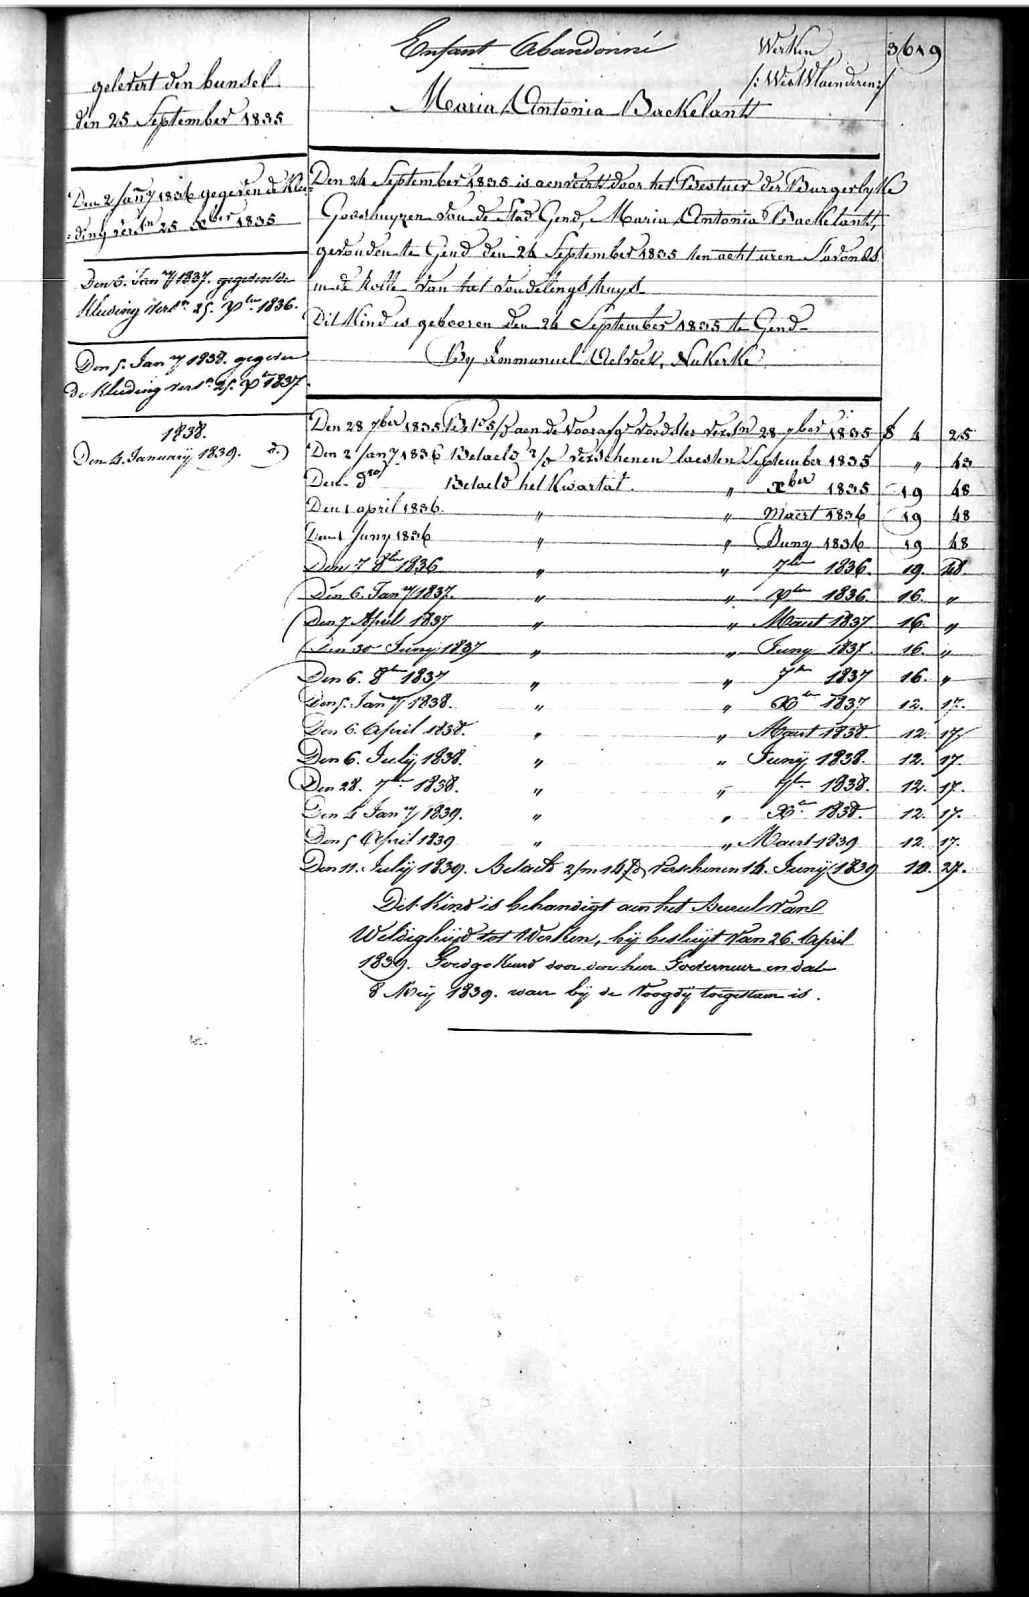 Enfant Abandonné Werken 3619
/: West Vlaenderen :/
Maria Antonia Backelandt
gelevert den bunsel
den 25 September 1835
Den 2 Jany 1836 gegeven de Klee=
=ding versn 25 Xber 1835
Den 6. Jany 1837. gegeven de
Kleeding versn 25. Xber 1836.
Den 5. Jany 1838. gegeven
de Kleeding versn 25. Xber 1837.
1838.
Den 4. January 1839. d.)
Den 24 September 1835 is aenveerd door het Bestuer der Burgerlyke
Godshuyzen van de Stad Gend, Maria Antonia Backelandt,
gevonden te Gend den 24 September 1835 ten acht uren Savonds
in de Rolle van het vondelingshuys
Dit Kind is gebooren den 24 September 1835 te Gend
By Emmanuel Aelvoet, Nukerke
Den 28 7ber 1835 aen de voorafge voedster versn 28 7ber 1835 4 25
Den 2 Jany 1836 Betaeld verschenen laesten September 1835 " 43
Den do Betaeld het Kwartat. " Xber 1835 19 48
Den 1 april 1836. " " Maert 1836 19 48
Den 1 Juny 1836 " " Juny 1836 19 48
Den 7 8ber 1836 " " 7ber 1836. 19. 48
Den 6. Jany 1837. " " Xber 1836. 16. "
Den 7 April 1837 " " Maert 1837 16. "
Den 30 Juny 1837 " " Juny 1837. 16. "
Den 6. 8ber 1837 " " 7ber 1837 16. "
Den 5. Jany 1838. " " Xber 1837 12. 17.
Den 6. April 1838. " " Maert 1838 12. 17
Den 6. July 1838. " " Juny 1838. 12. 17.
Den 28. 7ber 1838. " " 7ber 1838. 12. 17.
Den 4 Jany 1839. " " Xber 1838. 12. 17.
Den 5 April 1839 " " Maert 1839 12. 17.
Den 11. July 1839. Betaeld 2/m 14/d verschenen 14. Juny 1839 10. 27.
Dit Kind is behandigt aen het Bureel van
Weldigheyd tot Werken, by besluyt van 26. April
1839. Goedgekeurd door den heer Goeverneur en dat
8 Mey 1839. waer by de Voogdy toegestaen is.